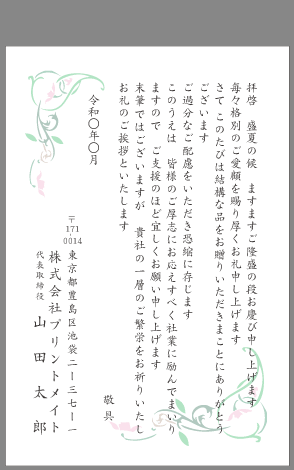 拝啓　盛夏の候　ますますご隆盛の段お慶び申し上げます
毎々格別のご愛顧を賜り厚くお礼申し上げます
さて　このたびは結構な品をお贈りいただきまことにありがとう
ございます
ご過分なご配慮をいただき恐縮に存じます
このうえは　皆様のご厚志にお応えすべく社業に励んでまいり
ますので　ご支援のほど宜しくお願い申し上げます
末筆ではございますが　貴社の一層のご繁栄をお祈りいたし
お礼のご挨拶といたします
敬具
令和〇年〇月
〒171-0014
東京都豊島区池袋二ー三七ー一
株式会社プリントメイト
代表取締役　山田太郎